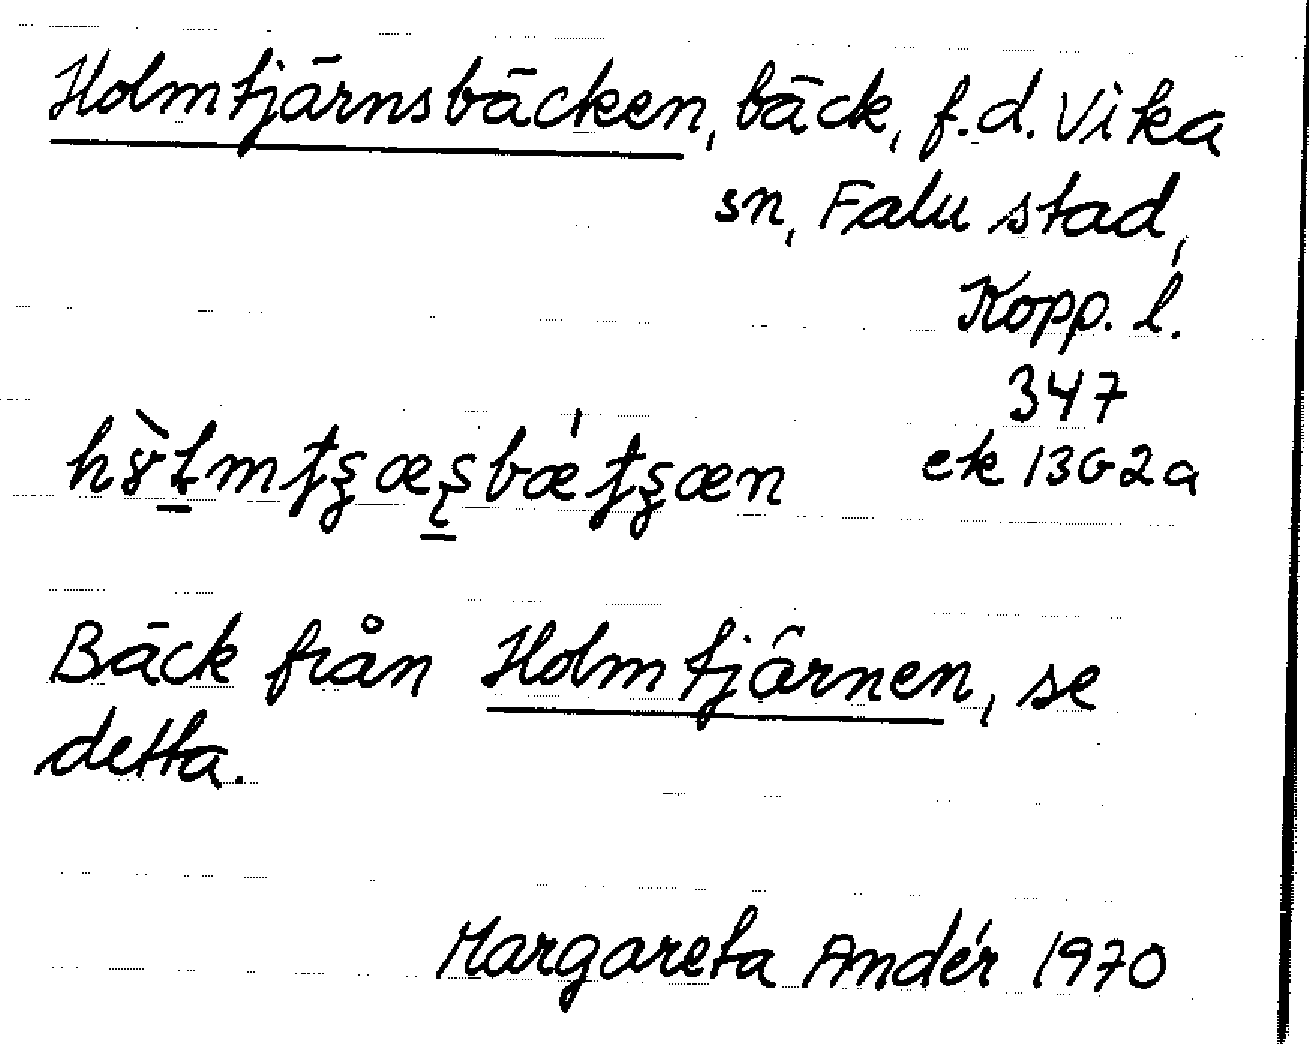 Holmtjärnsbäcken, bäck, f.d. Vika
sn, Falu stad,
Kopp. l.
347
ek 13G2a
Bäck från Holmtjärnen, se
detta.
Margareta Andér 1970